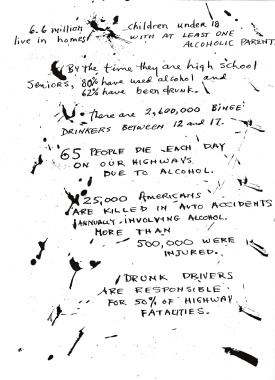 6.6 million children under 18
live in homes WITH AT LEAST ONE
ALCOHOLIC PARENT.
By the time they are high school
Seniors, 80% have used alcohol and
62% have been drunk.
There are 2,600,000 BINGE
DRINKERS BETWEEN 12 and 17.
65 PEOPLE DIE EACH DAY
ON OUR HIGHWAYS
DUE TO ALCOHOL.
25,000 AMERICANS
ARE KILLED IN AUTO ACCIDENTS
ANNUALLY INVOLVING ALCOHOL.
MORE THAN
500,000 WERE
INJURED.
DRUNK DRIVERS
ARE RESPONSIBLE
FOR 50% OF HIGHWAY
FATALITIES.